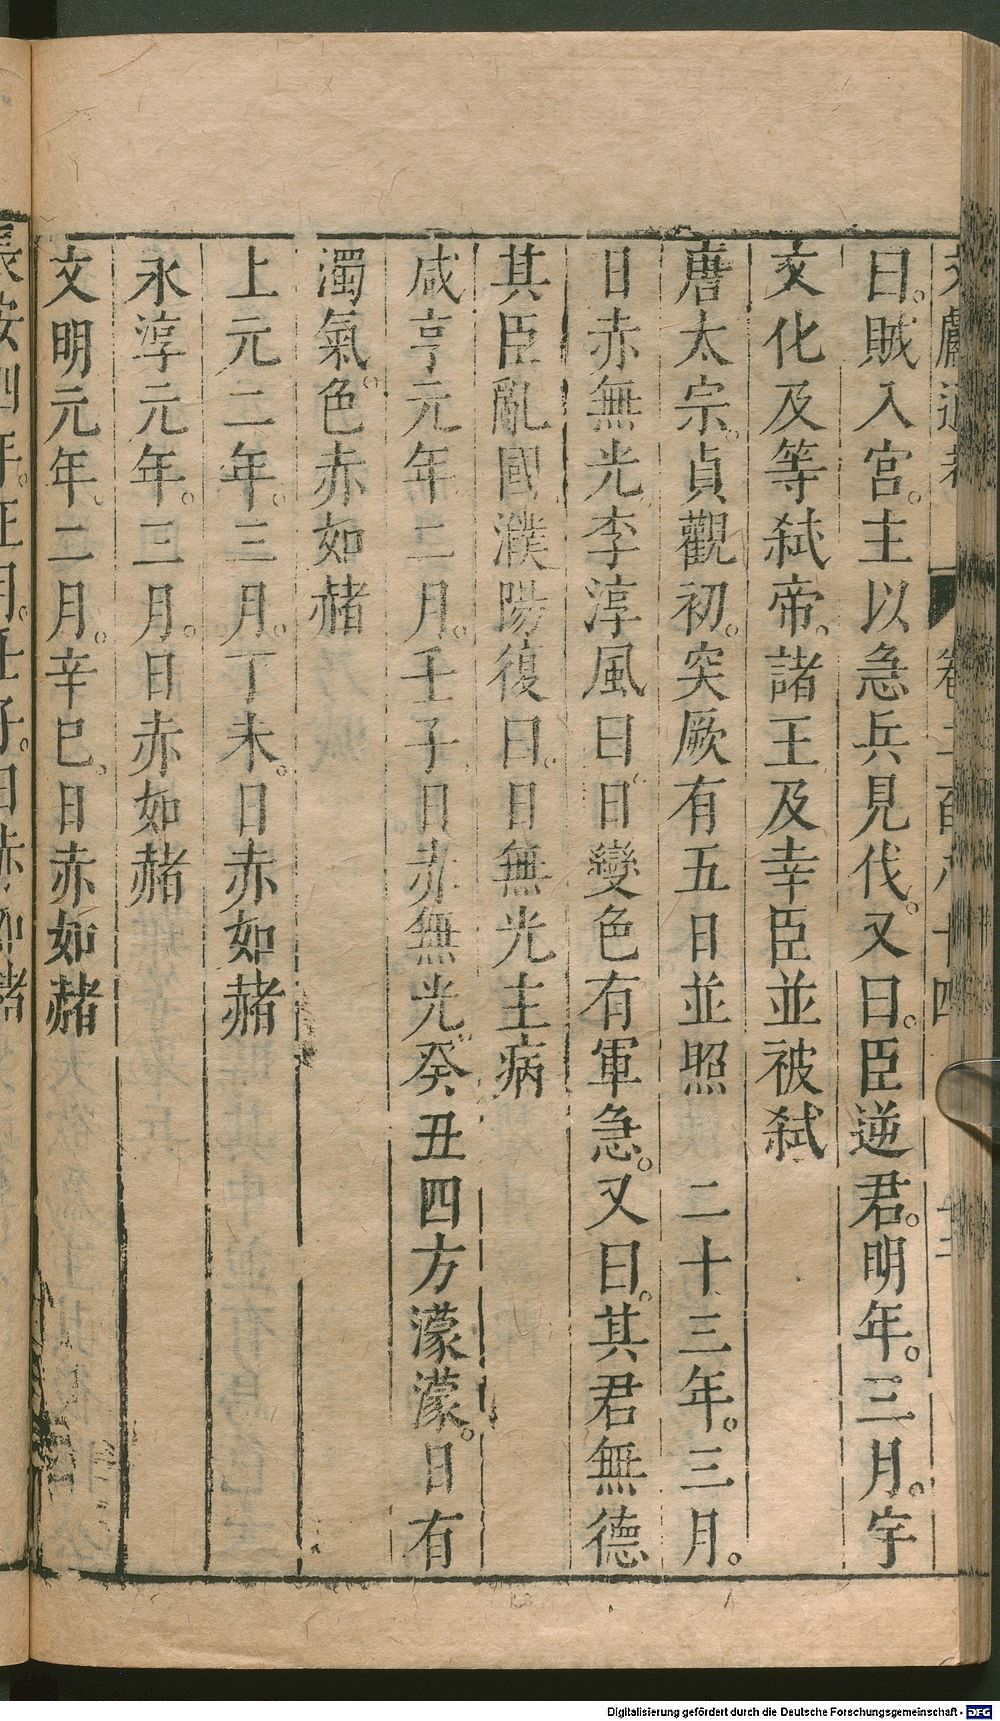 曰。賊入宮。主以急兵見伐。又曰。臣逆君。明年。三月。宇
文化及等弑帝。諸王及幸臣並被弑
唐太宗。貞觀初。突厥有五日並照 二十三年。三月。
日赤無光李淳風曰日變色有軍急。又曰。其君無德
其臣亂國濮陽復曰。日無光主病
咸亨元年二月。壬子日赤無光。癸丑四方濛濛。日有
濁氣。色赤如赭
上元二年。三月。丁未。日赤如赭
永淳元年。三月。日赤如赭
文明元年。二月。辛巳。日赤如赭
長安四年。正月。壬子。日赤如赭
Digitalisierung gefördert durch die Deutsche Forschungsgemeinschaft - DFG